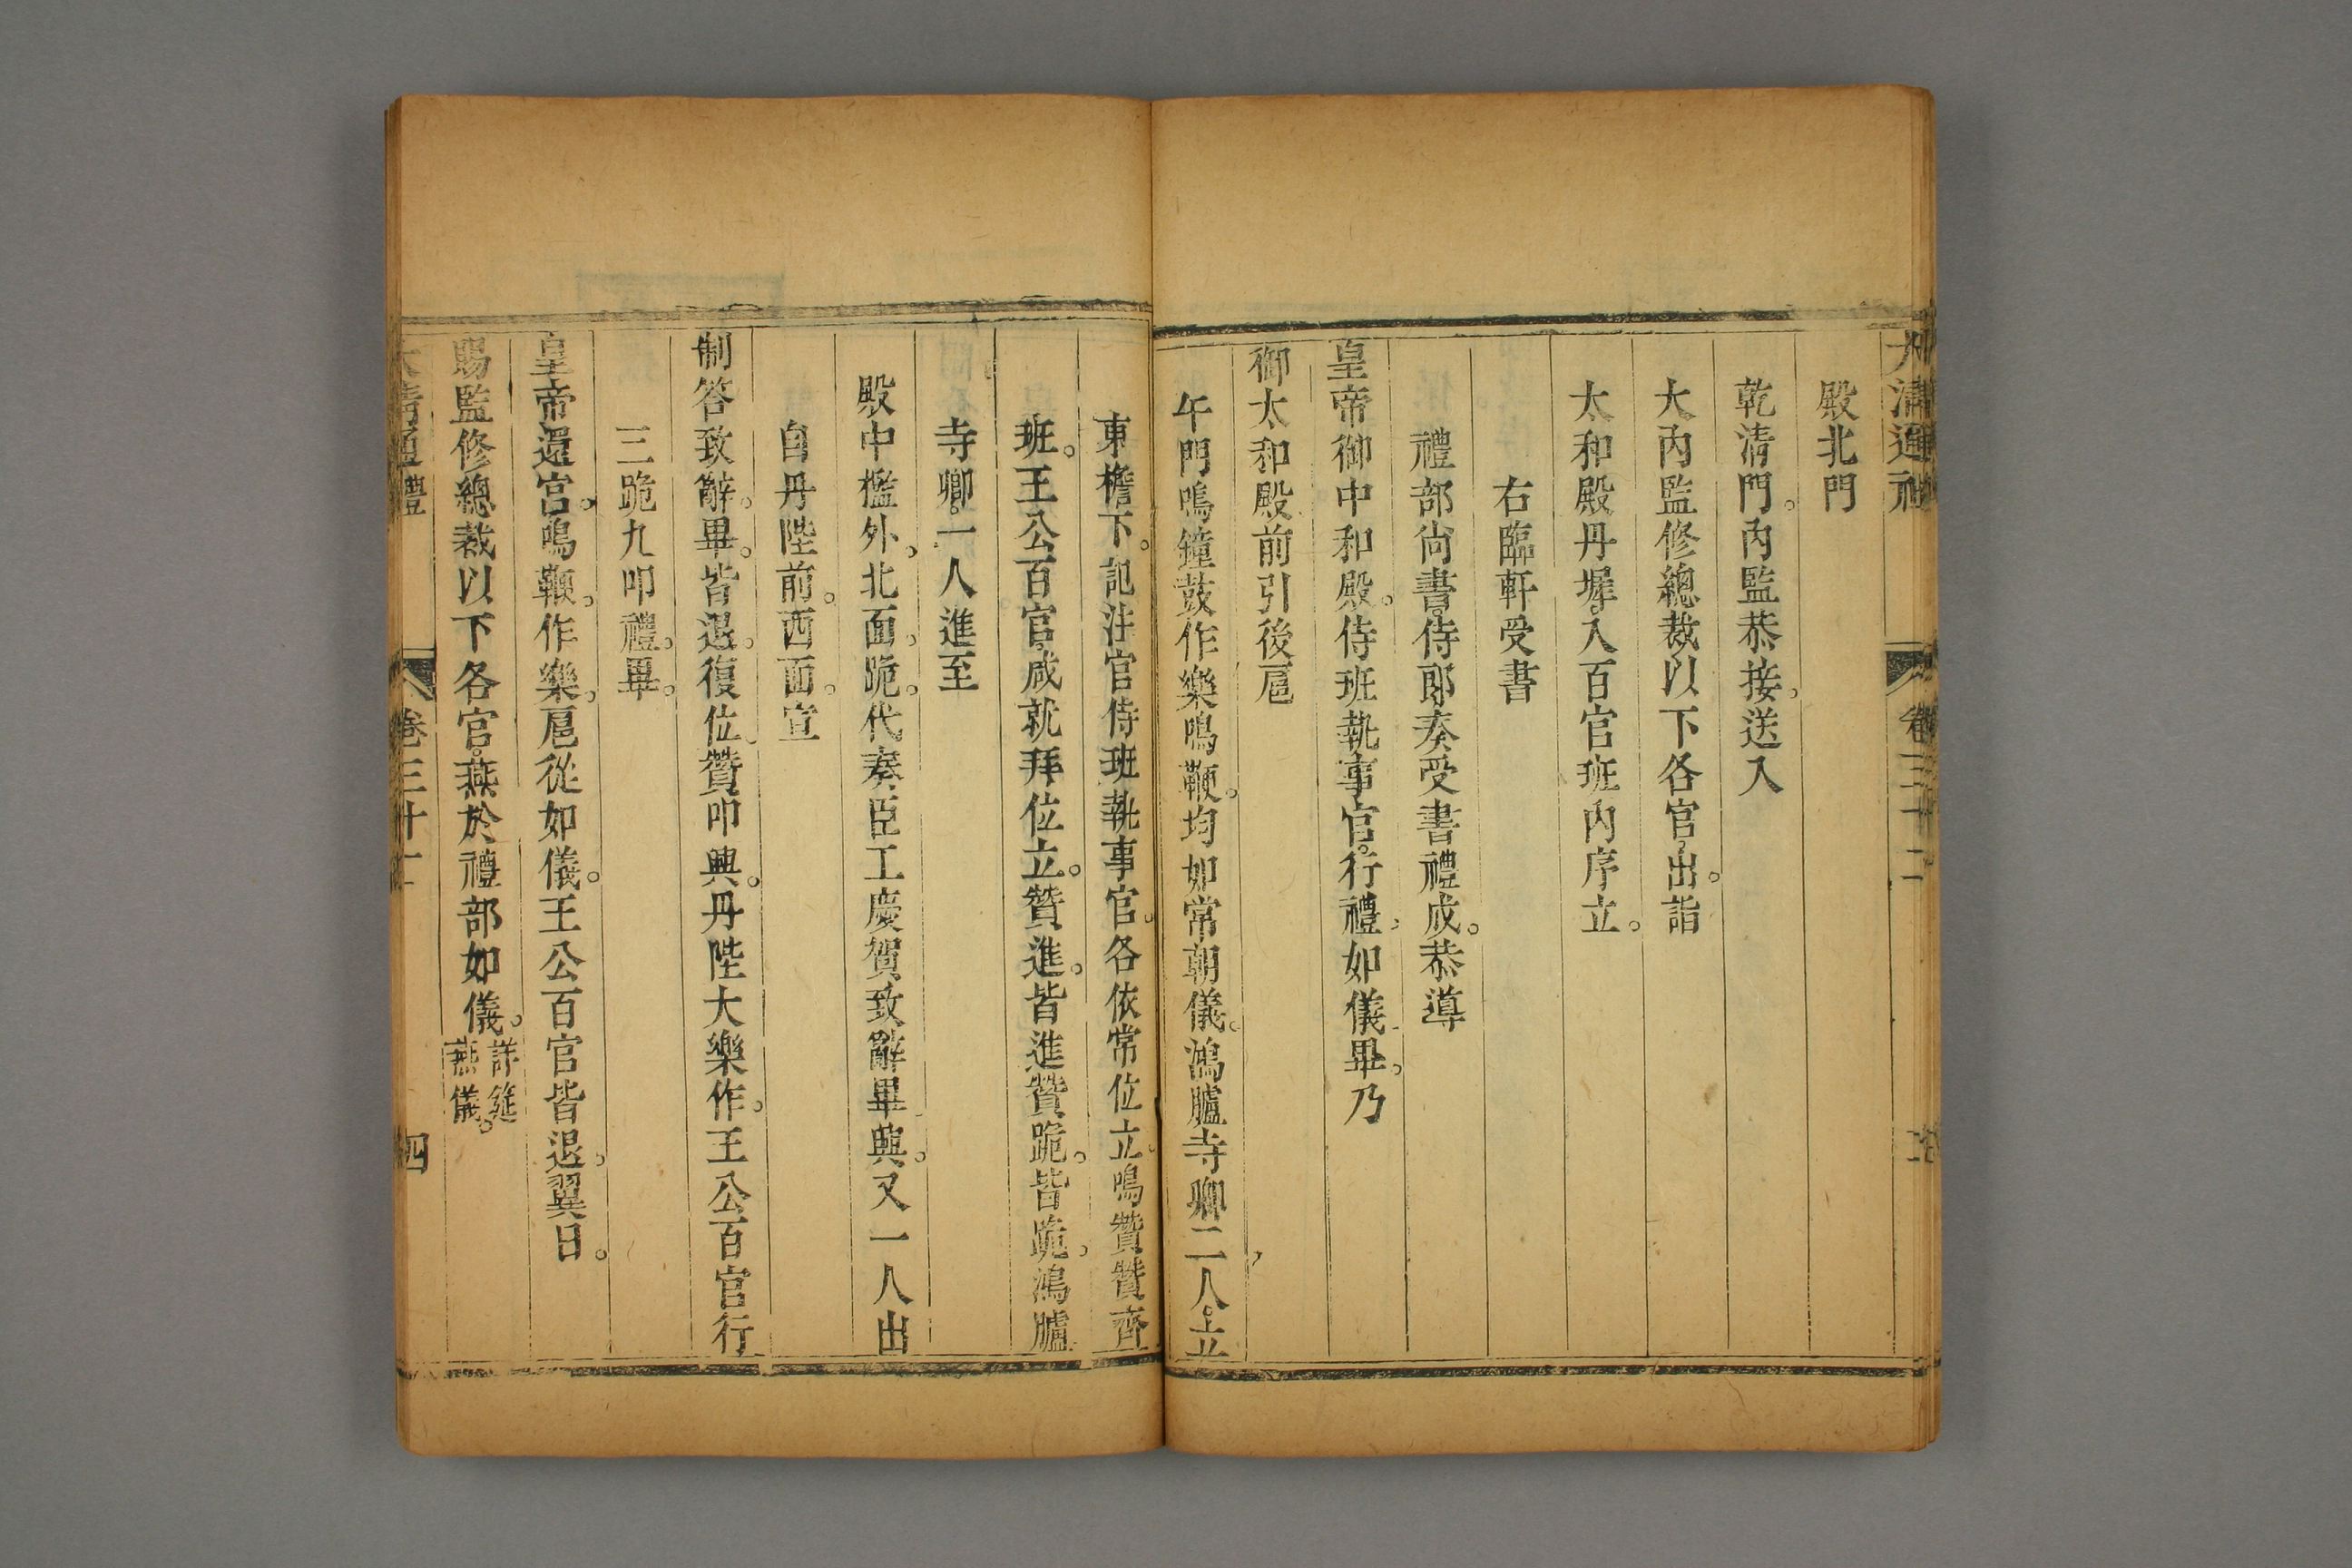 大清通禮 卷三十二
殿北門
乾清門。內監恭接。送入
大內監修總裁以下各官。出。詣
太和殿丹墀。入百官班內序立。
右臨軒受書
禮部尙書。侍郞奏受書禮成。恭導
皇帝御中和殿。侍班執事官。行禮。如儀畢。乃
御太和殿前引後扈
午門鳴鐘鼓作樂鳴鞭。均如常朝儀。鴻臚寺卿二人。立
東檐下。記注官侍班執事官。各依常位立。鳴贊贊齊
班。王公百官。咸就拜位立。贊進。皆進贊跪。皆跪。鴻臚
寺卿。一人進至
殿中檻外。北面。跪。代奏臣工慶賀致辭畢。興。又一人出
自丹陛前。西面。宣
制答致辭。畢。皆退。復位。贊叩興。丹陛大樂作。王公百官行
三跪九叩禮。畢。
皇帝還宮。鳴鞭。作樂。扈從如儀。王公百官皆退。翼日。
賜監修總裁以下各官。燕於禮部如儀。詳筵燕儀。
大清通禮 卷三十二 四